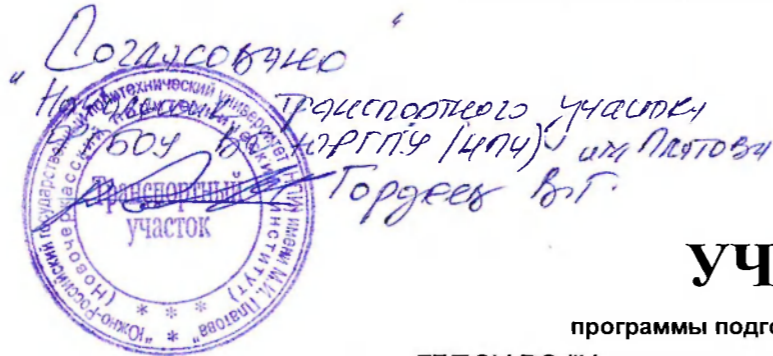 "Согласовано"
Начальник Транспортного участка
ФГБОУ ВО ЮРГПУ (НПИ) им Платова
Гордеев В.Г.
Транспортный
участок
"Южно-Российский государственный политехнический университет (НПИ) имени М.И. Платова"
(Новочеркасский политехнический институт)
УЧ
программы подго